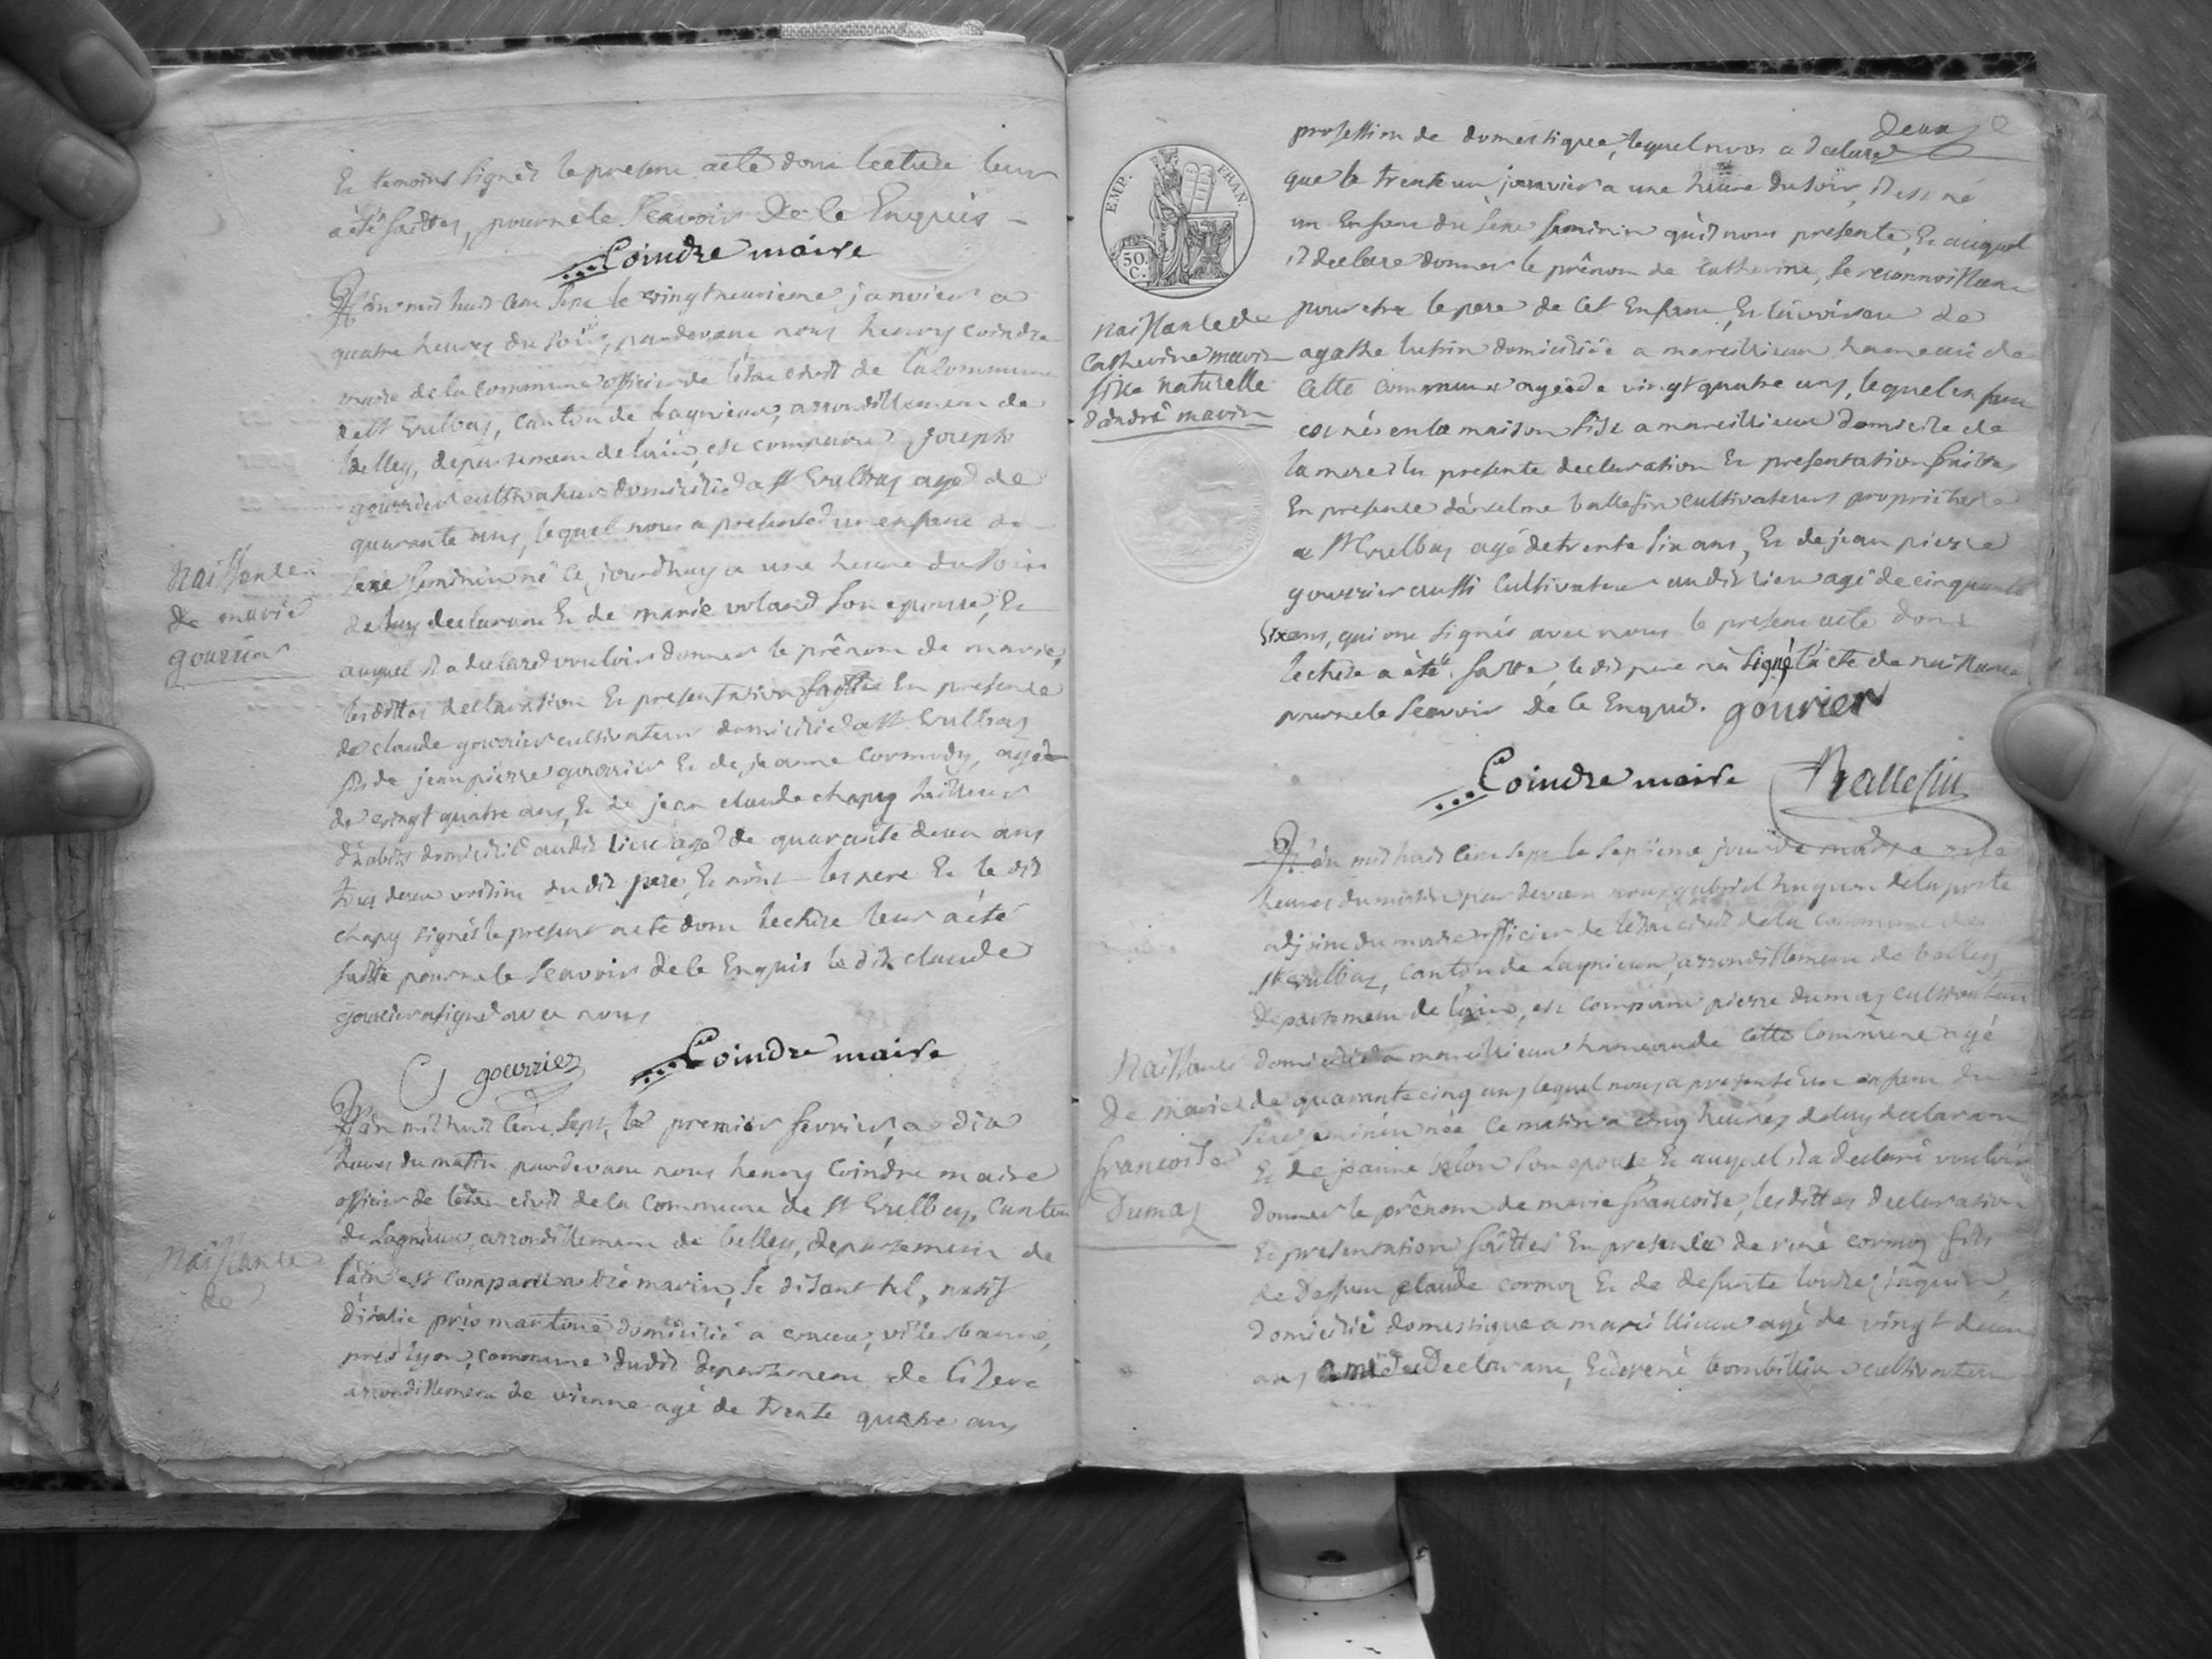 Et temoins signés le present acte dont lecture leur
a été faittes, pour ne le scavoir de ce Enquis
Coindre maire
L'an mil huit cent sept le vingt neuvieme janvier a
quatre heures du soir, pardevant nous henry coindre
maire de la commune officier de l'état civil de la commune
de St Vulbas, canton de Lagnieux, arrondissement de
belley, departement de l'ain, est comparu joseph
gourrier cultivateur domicilié a St Vulbas agé de
quarante ans, lequel nous a presenté un enfant du
sexe feminin né ce jourdhuy a une heure du soir
de luy declarant Et de marie voland son epouse, Et
auquel il a declaré vouloir donner le prénom de marie,
lesdittes declaration Et presentation faittes En presence
de claude gourrier cultivateur domicilié a St Vulbas
fils de jean pierre gourrier Et de jeanne cormody, agé
de vingt quatre ans, Et de jean claude chapuy tailleur
d'habits domicilié audit lieu agé de quarante deux ans
tous deux voisins du dit pere, Et n'ont les pere Et le dit
chapuy signés le present acte dont lecture leur a été
faitte pour ne le scavoir de ce Enquis le dit claude
gourrier a signé avec nous
C gourrier Coindre maire
Naissance
de marie
gourrier
L'an mil huit cent sept, le premier fevrier, a dix
heures du matin pardevant nous henry Coindre maire
officier de l'état civil de la Commune de St Vulbas, Canton
de Lagnieux, arrondissement de belley, departement de
l'ain est comparu andré marin, se disant tel, natif
d'italie près domicilié a villeurbanne,
pres lyon, commune dudit departement de L'izere
arrondissement de vienne agé de trente quatre ans
Naissance
de
deux
profession de domestique, lequel nous a declaré
que le trente un janvier a une heure du soir, il est né
un Enfant du sexe feminin qu'il nous presente, Et auquel
il declare donner le prénom de catherine, se reconnoissant
pour etre le pere de cet Enfant, Et l'avoir eu de
agathe domiciliée a marcillieux hameau de
cette commune agée de vingt quatre ans, lequel enfant
est né en la maison sise a marcillieux domicile de
la mere la presente declaration Et presentation faittes
En presence d'anselme ballefin cultivateur propriétaire
a St Vulbas agé de trente six ans, Et de jean pierre
gourrier aussi cultivateur audit lieu agé de cinquante
six ans, qui ont signés avec nous le present acte dont
lecture a été faitte, le dit pere n'a signé l'acte de naissance
pour ne le scavoir de ce Enquis. gourier
Coindre maire Ballefin
EMP. FRAN.
50. C.
Naissance de
Catherine marin
fille naturelle
d'andré marin
L'an mil huit cent sept le septieme jour de mars a
heures du matin par devant nous gabriel huguon delaporte
adjoint du maire officier de l'état civil de la commune de
St Vulbas, canton de Lagnieux, arrondissement de belley
departement de l'ain, est comparu pierre dumas cultivateur
domicilié a marcillieux hameau de cette Commune agé
de quarante cinq ans lequel nous a presenté un enfant du
sexe feminin née ce matin a cinq heures de luy declarant
Et de jeanne son epouse Et auquel il a declaré vouloir
donner le prénom de marie françoise, lesdittes declaration
Et presentation faittes En presence de réné cormoz fils
de deffunt claude cormoz Et de defunte jaquin,
domicilié domestique a marcillieux agé de vingt deux
ans ami du Declarant, Et de rené cultivateur
Naissance
de marie
françoise
Dumas